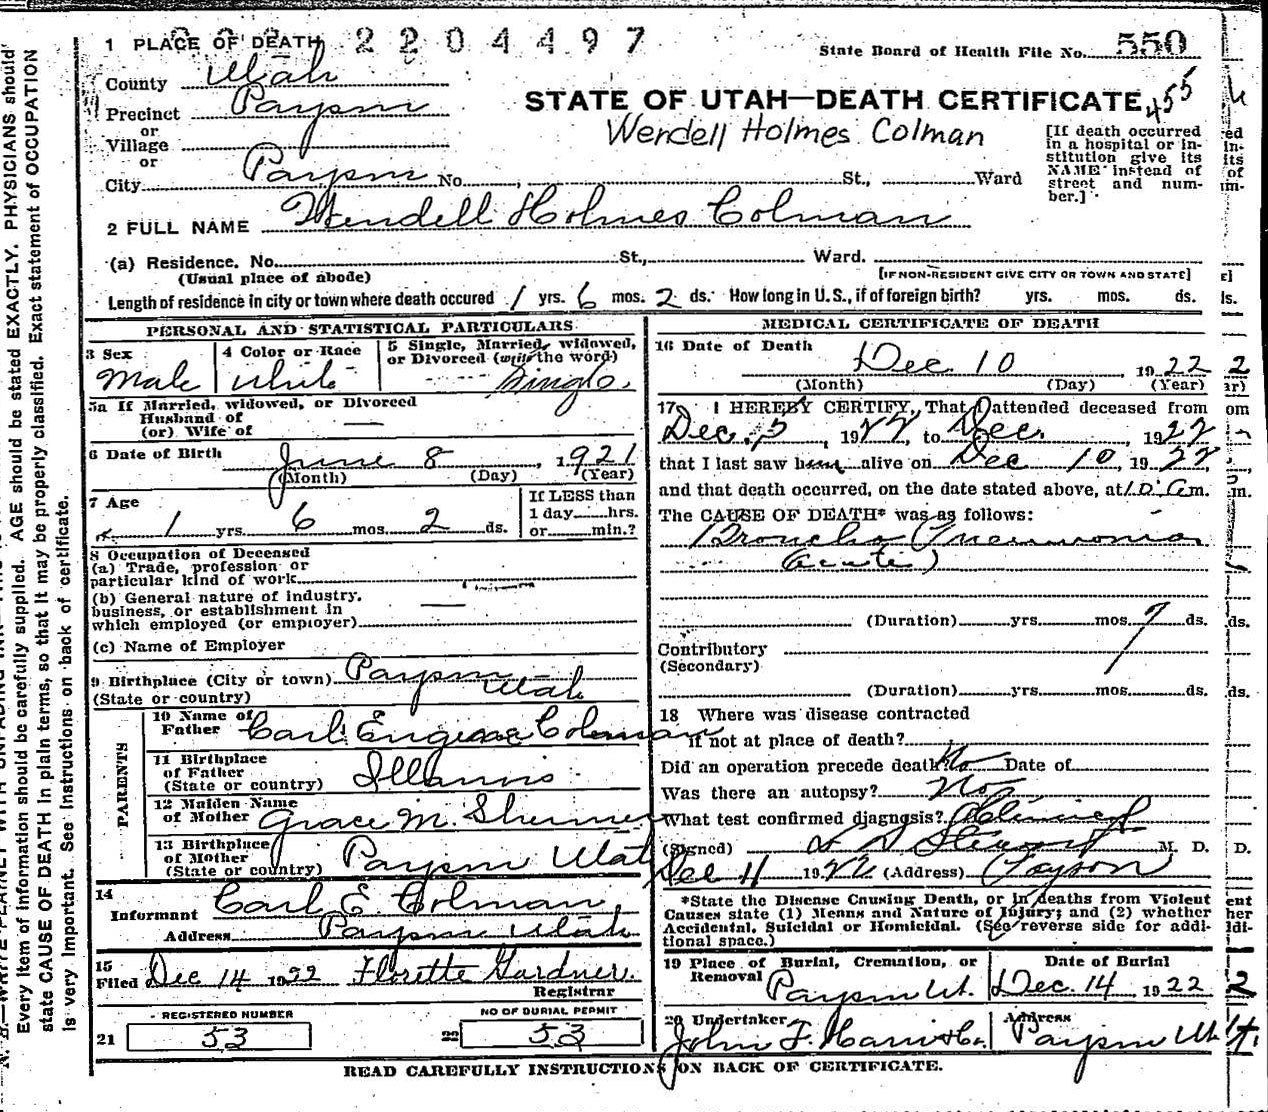 1 PLACE OF DEATH 2204497
State Board of Health File No. 550
County Utah
Precinct Payson
or
Village
or
City Payson No. St., Ward
STATE OF UTAH—DEATH CERTIFICATE 455
Wendell Holmes Colman
[If death occurred
in a hospital or in-
stitution give its
NAME instead of
street and num-
ber.]
2 FULL NAME Wendell Holmes Colman
(a) Residence. No. St., Ward.
(Usual place of abode) [IF NON-RESIDENT GIVE CITY OR TOWN AND STATE]
Length of residence in city or town where death occured 1 yrs. 6 mos. 2 ds. How long in U. S., if of foreign birth? yrs. mos. ds.
PERSONAL AND STATISTICAL PARTICULARS
3 Sex
Male
4 Color or Race
White
5 Single, Married, widowed,
or Divorced (write the word)
Single
5a If Married, widowed, or Divorced
Husband of
(or) Wife of —
6 Date of Birth
June 8, 1921
(Month) (Day) (Year)
7 Age
1 yrs. 6 mos. 2 ds.
If LESS than
1 day hrs.
or min.?
8 Occupation of Deceased
(a) Trade, profession or
particular kind of work
(b) General nature of industry,
business, or establishment in
which employed (or employer) —
(c) Name of Employer
9 Birthplace (City or town) Payson
(State or country) Utah
PARENTS
10 Name of
Father Carl Eugene Colman
11 Birthplace
of Father
(State or country) Illinois
12 Maiden Name
of Mother Grace M.
13 Birthplace
of Mother
(State or country) Payson Utah
14
Informant Carl E Colman
Address Payson Utah
15
Filed Dec 14 1922 Florette Gardner.
Registrar
REGISTERED NUMBER
21 53
NO OF BURIAL PERMIT
22 53
MEDICAL CERTIFICATE OF DEATH
16 Date of Death
Dec 10 1922
(Month) (Day) (Year)
17 I HEREBY CERTIFY, That I attended deceased from
Dec. 5, 1922, to Dec. , 1922
that I last saw him alive on Dec 10, 1922,
and that death occurred, on the date stated above, at 10 a m.
The CAUSE OF DEATH* was as follows:
Broncho Pneumonia
(acute)
(Duration) yrs. mos. 7 ds.
Contributory
(Secondary)
(Duration) yrs. mos. ds.
18 Where was disease contracted
if not at place of death?
Did an operation precede death? No Date of
Was there an autopsy? No
What test confirmed diagnosis? Clinical
(Signed) L D Stewart M. D.
Dec 11 1922 (Address) Payson
*State the Disease Causing Death, or in deaths from Violent
Causes state (1) Menns and Nature of Injury; and (2) whether
Accidental, Suicidal or Homicidal. (See reverse side for addi-
tional space.)
19 Place of Burial, Cremation, or
Removal
Payson Ut.
Date of Burial
Dec. 14, 1922
20 Undertaker
John F.
Address
Payson Ut
READ CAREFULLY INSTRUCTIONS ON BACK OF CERTIFICATE.
Every item of information should be carefully supplied. AGE should be stated EXACTLY. PHYSICIANS should
state CAUSE OF DEATH in plain terms, so that it may be properly classified. Exact statement of OCCUPATION
is very important. See instructions on back of certificate.